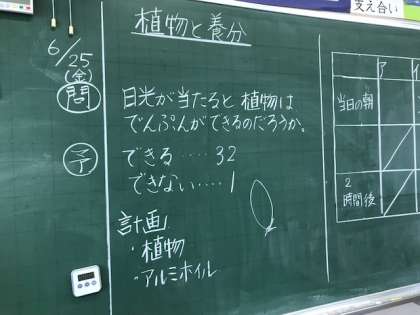 支え合い
植物と養分
6/25
(金)
問
日光が当たると植物は
でんぷんができるのだろうか。
予
できる‥‥32
できない‥‥1
計画
・植物
・アルミホイル
ア
当日の朝
2
時間後